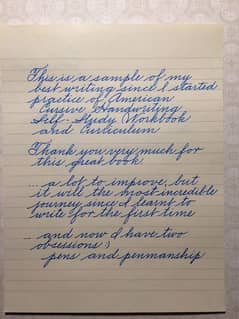 This is a sample of my
best writing since I started
practice of American
Cursive Handwriting
Self-Study Workbook
and Curriculum
Thank you very much for
this great book
... a lot to improve, but
it will the most incredible
journey since I learnt to
write for the first time
... and now I have two
obsessions :)
pens and penmanship